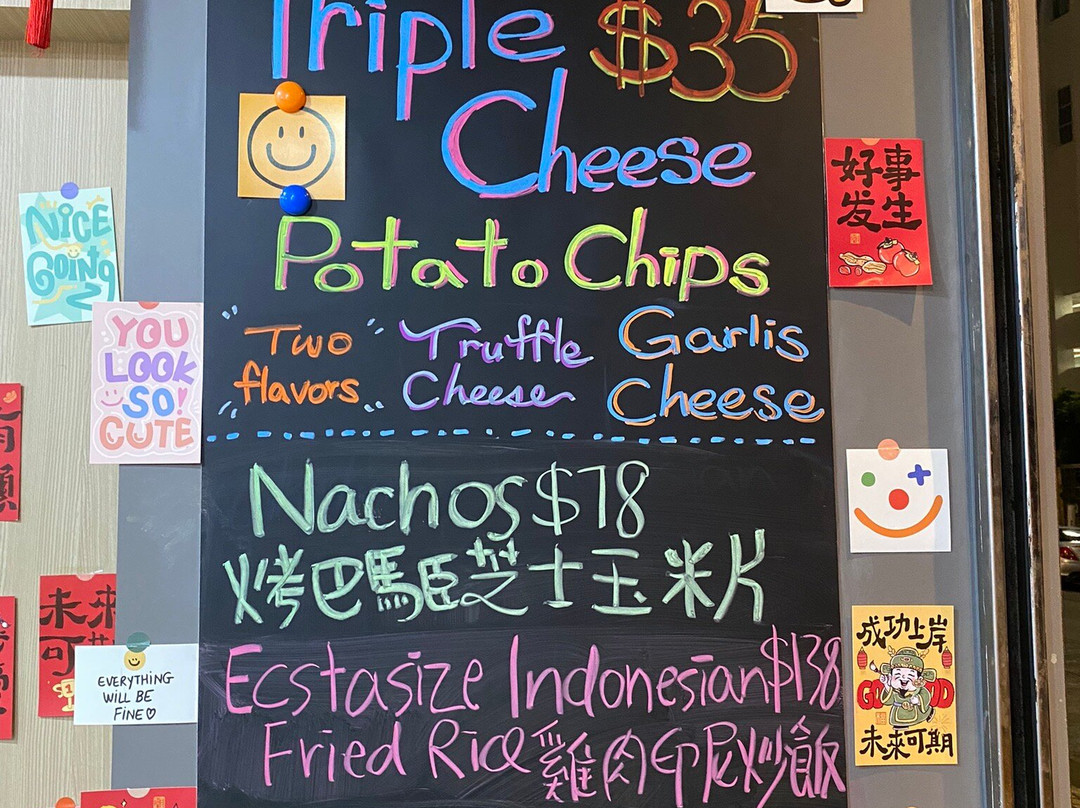 Triple $35
Cheese
Potato Chips
"Two flavors"
Truffle Cheese
Garlis Cheese
Nachos $78
烤巴馬臣芝士玉米片
Ecstasize Indonesian $138
Fried Rice 雞肉印尼炒飯
NICE
GOING
YOU
LOOK
SO!
CUTE
未來
可
EVERYTHING
WILL BE
FINE
好事
发生
成功上岸
GOOD
未来可期